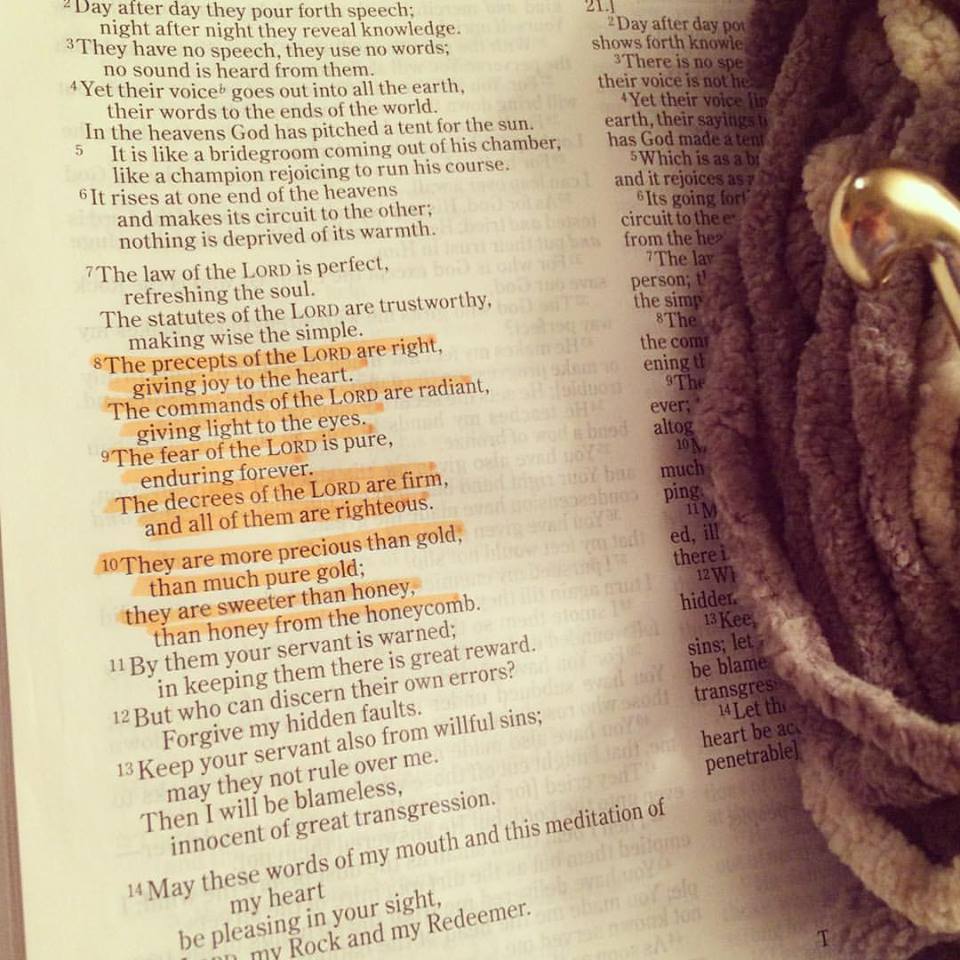 2 Day after day they pour forth speech;
night after night they reveal knowledge.
3 They have no speech, they use no words;
no sound is heard from them.
4 Yet their voice b goes out into all the earth,
their words to the ends of the world.
In the heavens God has pitched a tent for the sun.
5 It is like a bridegroom coming out of his chamber,
like a champion rejoicing to run his course.
6 It rises at one end of the heavens
and makes its circuit to the other;
nothing is deprived of its warmth.
7 The law of the LORD is perfect,
refreshing the soul.
The statutes of the LORD are trustworthy,
making wise the simple.
8 The precepts of the LORD are right,
giving joy to the heart.
The commands of the LORD are radiant,
giving light to the eyes.
9 The fear of the LORD is pure,
enduring forever.
The decrees of the LORD are firm,
and all of them are righteous.
10 They are more precious than gold,
than much pure gold;
they are sweeter than honey,
than honey from the honeycomb.
11 By them your servant is warned;
in keeping them there is great reward.
12 But who can discern their own errors?
Forgive my hidden faults.
13 Keep your servant also from willful sins;
may they not rule over me.
Then I will be blameless,
innocent of great transgression.
14 May these words of my mouth and this meditation of
my heart
be pleasing in your sight,
LORD, my Rock and my Redeemer.
21.]
2 Day after day
shows forth
3 There is no
their voice is not
4 Yet their voice
earth, their sayings
has God made a tent
5 Which is as a
and it rejoices as
6 Its going
circuit to the
from the
7 The
person;
the
8 The
the
ening
9 The
ever;
10
much
ping
11
ed, ill
there
12
hidden
13
sins; let
be
14 Let
heart be
penetrable]
T